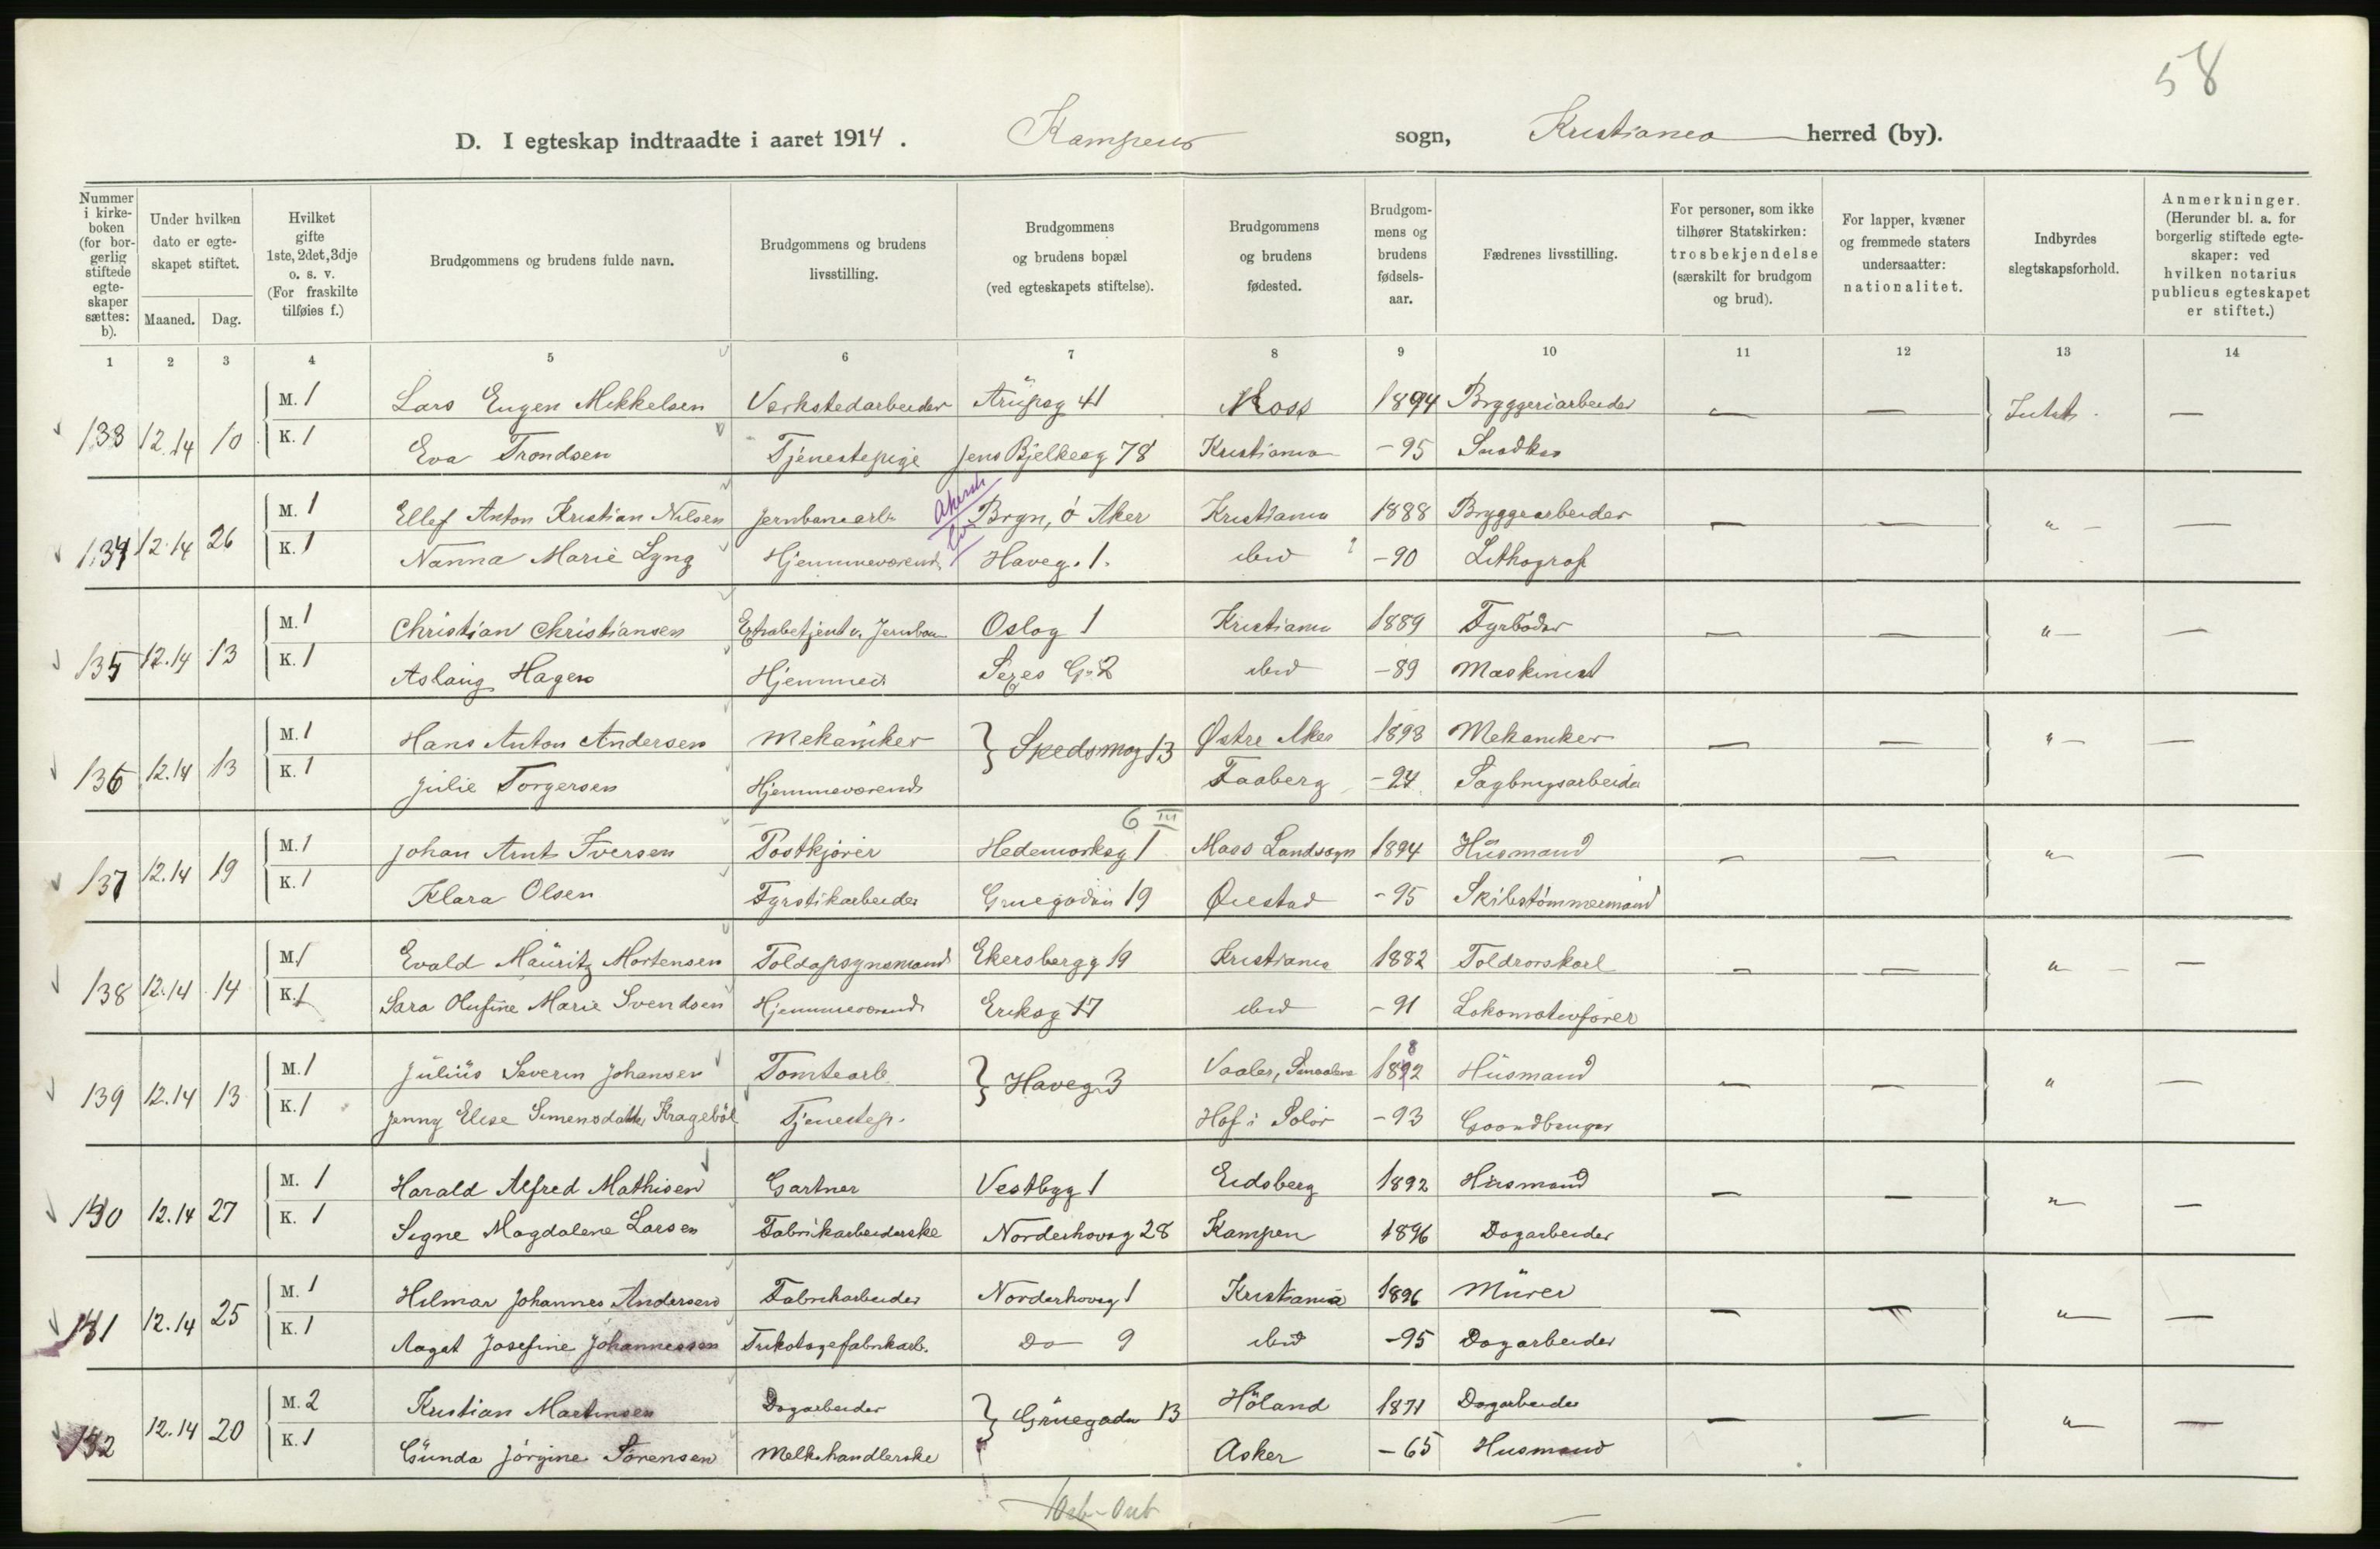 58
D. I egteskap indtraadte i aaret 1914. Kampens sogn, Kristiania herred (by).
Nummer i kirke-boken (for bor-gerlig stiftede egte-skaper sættes: b).
Under hvilken dato er egte-skapet stiftet.
Maaned. Dag.
Hvilket gifte 1ste, 2det, 3dje o. s. v. (For fraskilte tilføies f.)
Brudgommens og brudens fulde navn.
Brudgommens og brudens livsstilling.
Brudgommens og brudens bopæl (ved egteskapets stiftelse).
Brudgommens og brudens fødested.
Brudgom-mens og brudens fødsels-aar.
Fædrenes livsstilling.
For personer, som ikke tilhører Statskirken: trosbekjendelse (særskilt for brudgom og brud).
For lapper, kvæner og fremmede staters undersaatter: nationalitet.
Indbyrdes slegtskapsforhold.
Anmerkninger. (Herunder bl. a. for borgerlig stiftede egte-skaper: ved hvilken notarius publicus egteskapet er stiftet.)
1 2 3 4 5 6 7 8 9 10 11 12 13 14
M. 1 Lars Eugen Mikkelsen Verkstedarbeider Arupsg 41 Moss 1894 Bryggeriarbeider — — Intet. —
133 12.14 10
K. 1 Eva Trondsen Tjenestepige Jens Bjelkesg 78 Kristiania -95 Snedker
M. 1 Ellef Anton Kristian Nilsen Jernbanearb. Bryn, Ø Aker Kristiania 1888 Bryggearbeider — — " — —
134 12.14 26
K. 1 Nanna Marie Lyng Hjemmeværende Haveg. 1. ibid -90 Lithograf
M. 1 Christian Christiansen Extrabetjent v. Jernban Oslog 1 Kristiania 1889 Fyrbøder — — " — —
135 12.14 13
K. 1 Aslaug Hagen Hjemmev. G. 2 ibid -89 Maskinist
M. 1 Hans Anton Andersen Mekaniker } Skedsmog 13 Østre Aker 1893 Mekaniker — — " — —
136 12.14 13
K. 1 Julie Torgersen Hjemmeværende Faaberg -94 Sagbrugsarbeider
6 III
M. 1 Johan Arnt Iversen Postkjører Hedemarksg 1 Moss Landsogn 1894 Husmand — — " —
137 12.14 19
K. 1 Klara Olsen Fyrstikarbeider Gruegaden 19 Øiestad -95 Skibstømmermand
M. 1 Evald Mauritz Mortensen Toldopsynsmand Ekersbergg 19 Kristiania 1882 Toldrorskarl — — " — —
138 12.14 14
K. 1 Sara Olufine Marie Svendsen Hjemmeværende Eriksg 17 ibid -91 Lokomotivfører
M. 1 Julius Severin Johansen Tomtearb. } Haveg. 3 Vaaler, Smaalene 1882 Husmand — — " —
139 12.14 13
K. 1 Jenny Elise Simensdatter Kragebøl Tjenestep. Hof i Solør -93 Gaardbruger
M. 1 Harald Alfred Mathisen Gartner Vestbyg 1 Eidsberg 1892 Husmand — — " —
140 12.14 27
K. 1 Signe Magdalene Larsen Fabrikarbeiderske Norderhovsg 28 Kampen 1896 Dagarbeider
M. 1 Hilmar Johannes Andersen Fabrikarbeider Norderhovsg 1 Kristiania 1896 Murer — — " — —
141 12.14 25
K. 1 Aagot Josefine Johannessen Trikotagefabrikarb. Do 9 ibid -95 Dagarbeider
M. 2 Kristian Martinsen Dagarbeider } Gruegaden 13 Høland 1871 Dagarbeider — — " — —
142 12.14 20
K. 1 Gunda Jørgine Sørensen Melkehandlerske Asker -65 Husmand